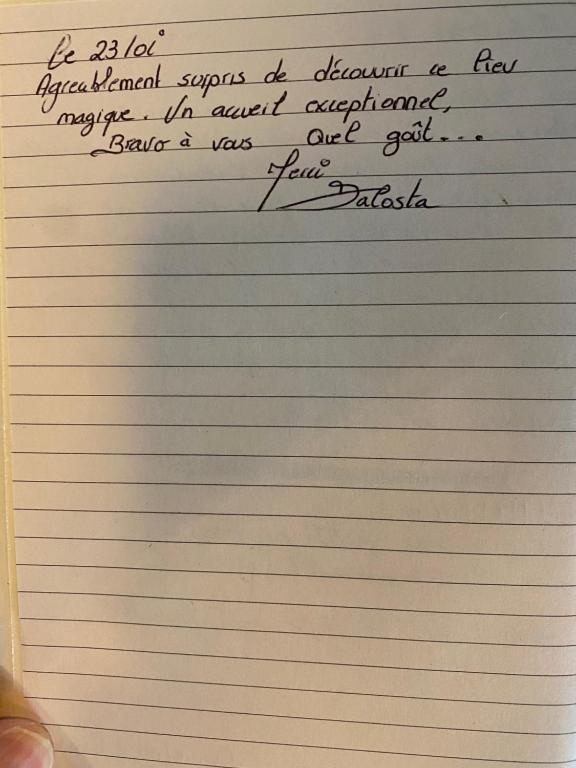 Le 23/01
Agreablement surpris de découvrir ce lieu
magique. Un accueil exceptionnel,
Bravo à vous Quel goût...
Merci
DaCosta